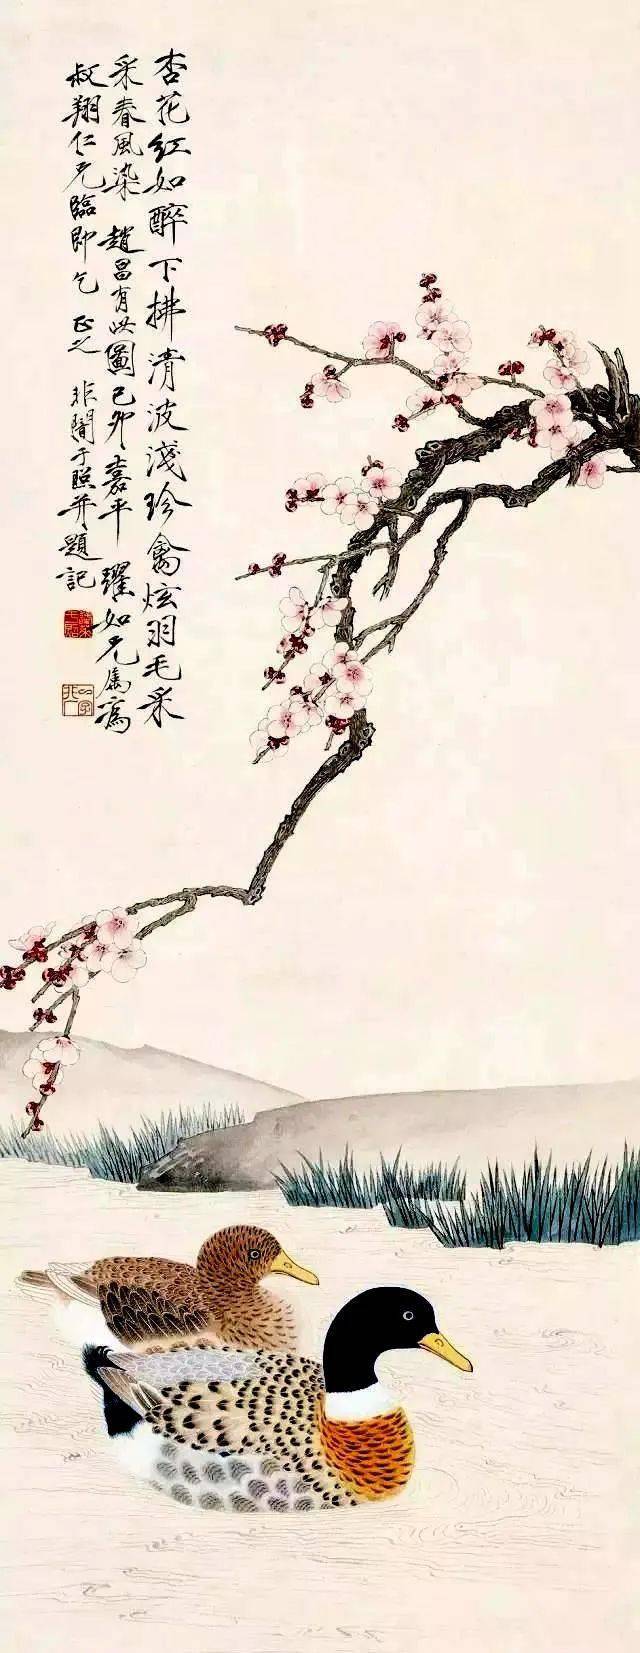 杏花紅如醉下拂清波淺珍禽炫羽毛采
采春風染趙昌有此圖己卯嘉平如兄屬寫
叔翔仁兄臨即乞正之非闇于照并題記